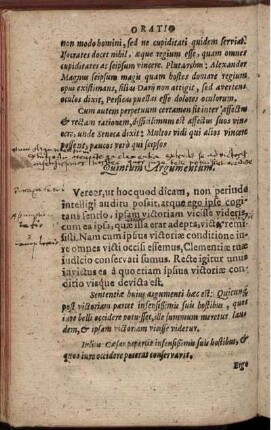 ORATIO
non modo homini, sed ne cupiditati quidem serviat.
Isocrates docet nihil, aeque regium esse, quam omnes
cupiditates ac seipsum vincere. Plutarchus: Alexander
Magnus seipsum magis quam hostes devincere regium
opus existimans, filias Darii non attigit, sed avertens
oculos dixit, Persicas puellas esse dolores oculorum.
Cum autem perpetuum certamen sit inter affectus
& rectam rationem, difficillimum est affectus suos vin-
cere, unde Seneca dixit: Multos vidi qui alios vincere
possent, paucos verò qui seipsos
Quintum Argumentum.
Vereor, ut hoc quod dicam, non perinde
intelligi auditu possit, atque ego ipse cogi-
tans sentio, ipsam victoriam vicisse videris,
cum ea ipsa, quae illa erat adepta, victis remi-
sisti. Nam cum ipsius victoriae conditione iu-
re omnes victi occisi essemus, Clementiae tuae
iudicio conservati sumus. Recte igitur unus
invictus es à quo etiam ipsius victoriae con-
ditio visque devicta est.
Sententia huius argumenti haec est: Quicunque
post victoriam parcet infensissimis suis hostibus, quos
iure belli occidere potuisset, ille summam meretur lau-
dem, & ipsam victoriam vicisse videtur.
Caesar pepercit infensissimis suis hostibus, &
quos iure occidere poterat conservavit.
Ergo